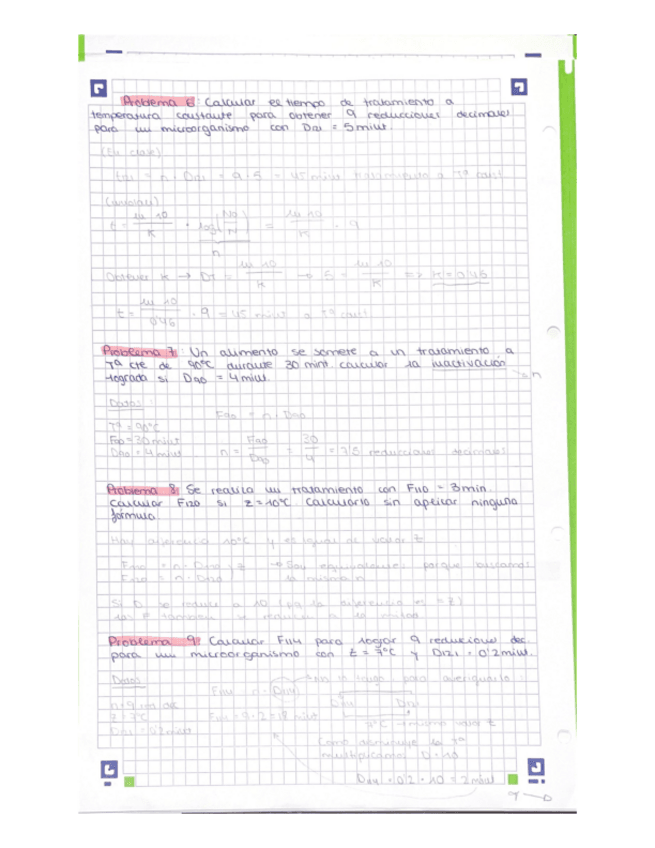 Problema 6: Calcular el tiempo de tratamiento a
temperatura constante para obtener 9 reducciones decimales
para un microorganismo con D121 = 5 minut.
(En clase)
t121 = n · D121 = 9 · 5 = 45 minut tratamiento a Tª const
t = ln 10 / K · log (No / N) = ln 10 / K · 9
n
Obtener K → DT = ln 10 / K → 5 = ln 10 / K => K = 0'46
t = ln 10 / 0'46 · 9 = 45 minut a Tª const
Problema 7: Un alimento se somete a un tratamiento a
Tª cte de 90ºC durante 30 mint. calcular la inactivación → n
lograda si D90 = 4 miut.
Datos:
F90 = n · D90
Tª = 90ºC
F90 = 30 miut
D90 = 4 miut
n = F90 / D90 = 30 / 4 = 7'5 reducciones decimales
Problema 8: Se realiza un tratamiento con F110 = 3 min.
Calcular F120 si z = 10ºC Calcularlo sin aplicar ninguna
fórmula.
Hay diferencia 10ºC y es igual de valor z
→ Son equivalentes porque buscamos
la misma n
Si D se reduce a 10 (pq la diferencia es = z)
Problema 9: Calcular F114 para lograr 9 reducciones dec.
para un microorganismo con z = 7ºC y D121 = 0'2 miut.
Datos:
F114 = n · D114 → no la tengo, para averiguarlo:
n = 9 red dec
z = 7ºC
D121 = 0'2 miut
F114 = 9 · 2 = 18 miut
D114 D121
7ºC → mismo valor z
Como disminuye la Tª
multiplicamos D · 10
D114 = 0'2 · 10 = 2 miut